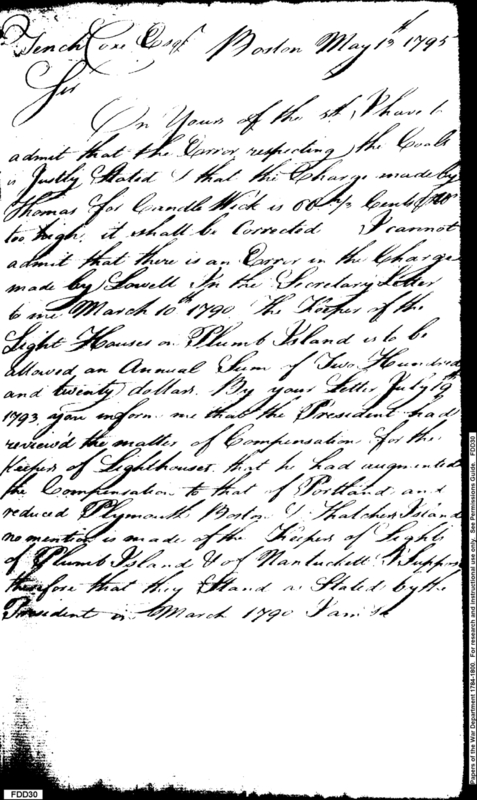 Tench Coxe Esqr Boston May 13th 1795
Sir
On Yours of the 5th, I have to
admit that the Error respecting the Coall
is Justly Stated & that the Charge made by
Thomas for Candle Wick is 66 2/3 Cents
too high, it shall be Corrected I cannot
admit that there is an Error in the Charge
made by Lowell In the Secretary Letter
to me March 10th 1790 The Keeper of the
Light Houses on Plumb Island is to be
allowed an Annual Sum of Two Hundred
and twenty dollars. By your Letter July 19th
1793 you inform me that the President had
reviewd the matter of Compensation for the
Keepers of Lighthouses that he had augmented
the Compensation to that of Portland and
reduced Plymouth Boston & Thatchers Island
no mention is made of the Keepers of Lights
of Plumb Island & of Nantuckett I Suppose
therefore that they Stand as Stated by the
President in March 1790 I am &c
FDD30
Papers of the War Department 1784-1800. For research and instructional use only. See Permissions Guide. FDD30